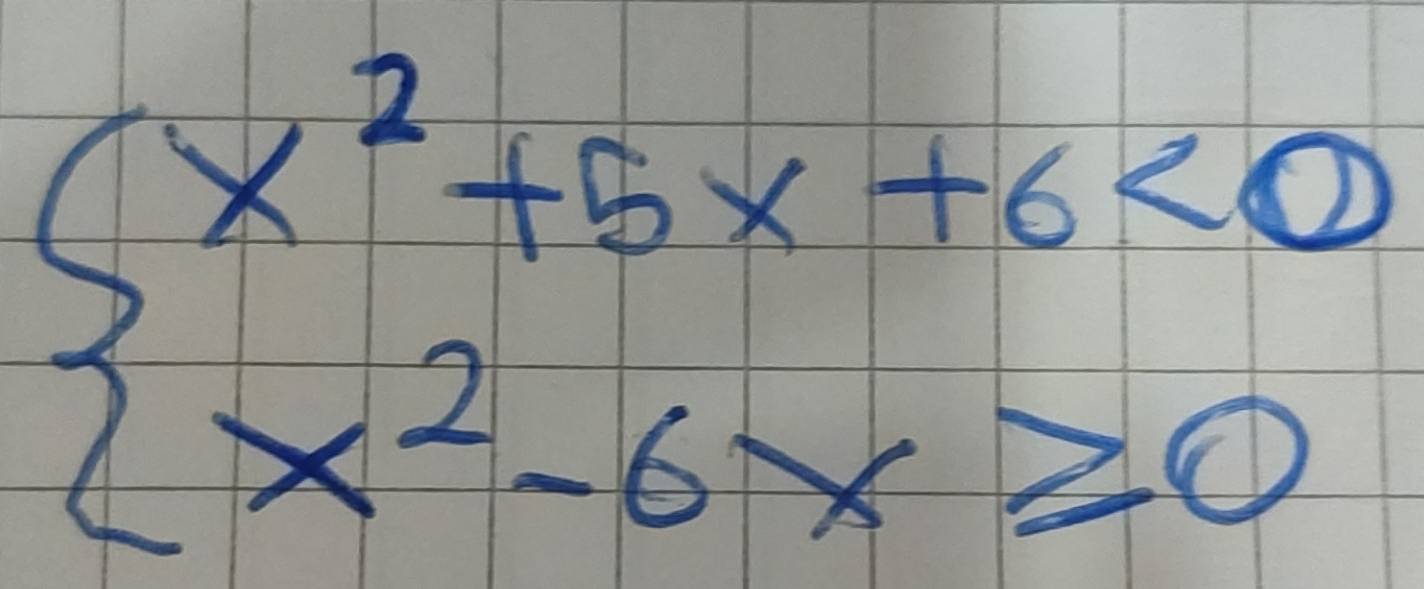 x² + 5x + 6 < 0
x² - 6x ≥ 0